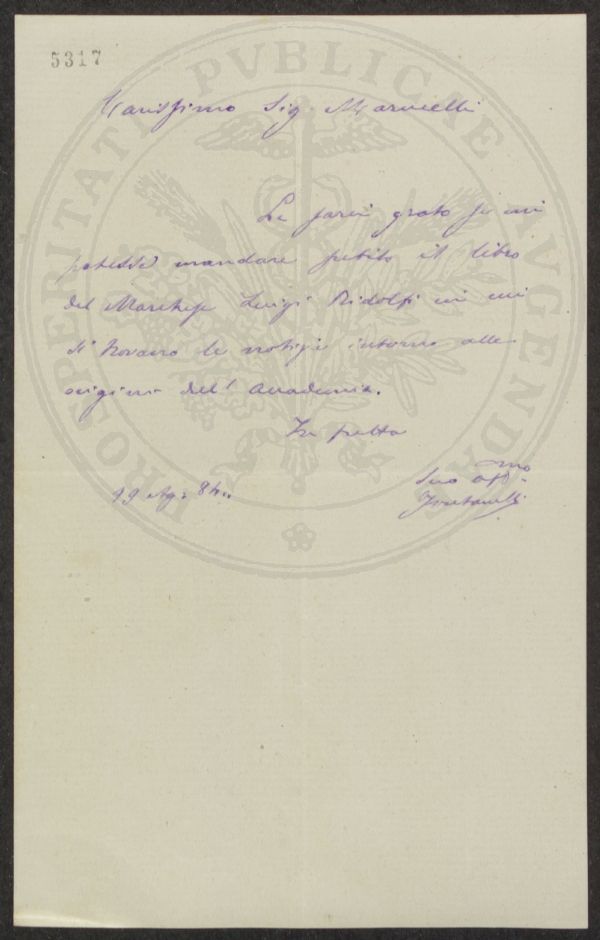 5317
PROSPERITATI PVBLICAE AVGENDAE
Carissimo Sig. Marucelli
Le sarei grato se mi
potesse mandare subito il libro
del Marchese Luigi Ridolfi in cui
si trovano le notizie intorno alle
origini dell' Accademia.
In fretta
Suo aff.mo
19 Ag. 84.